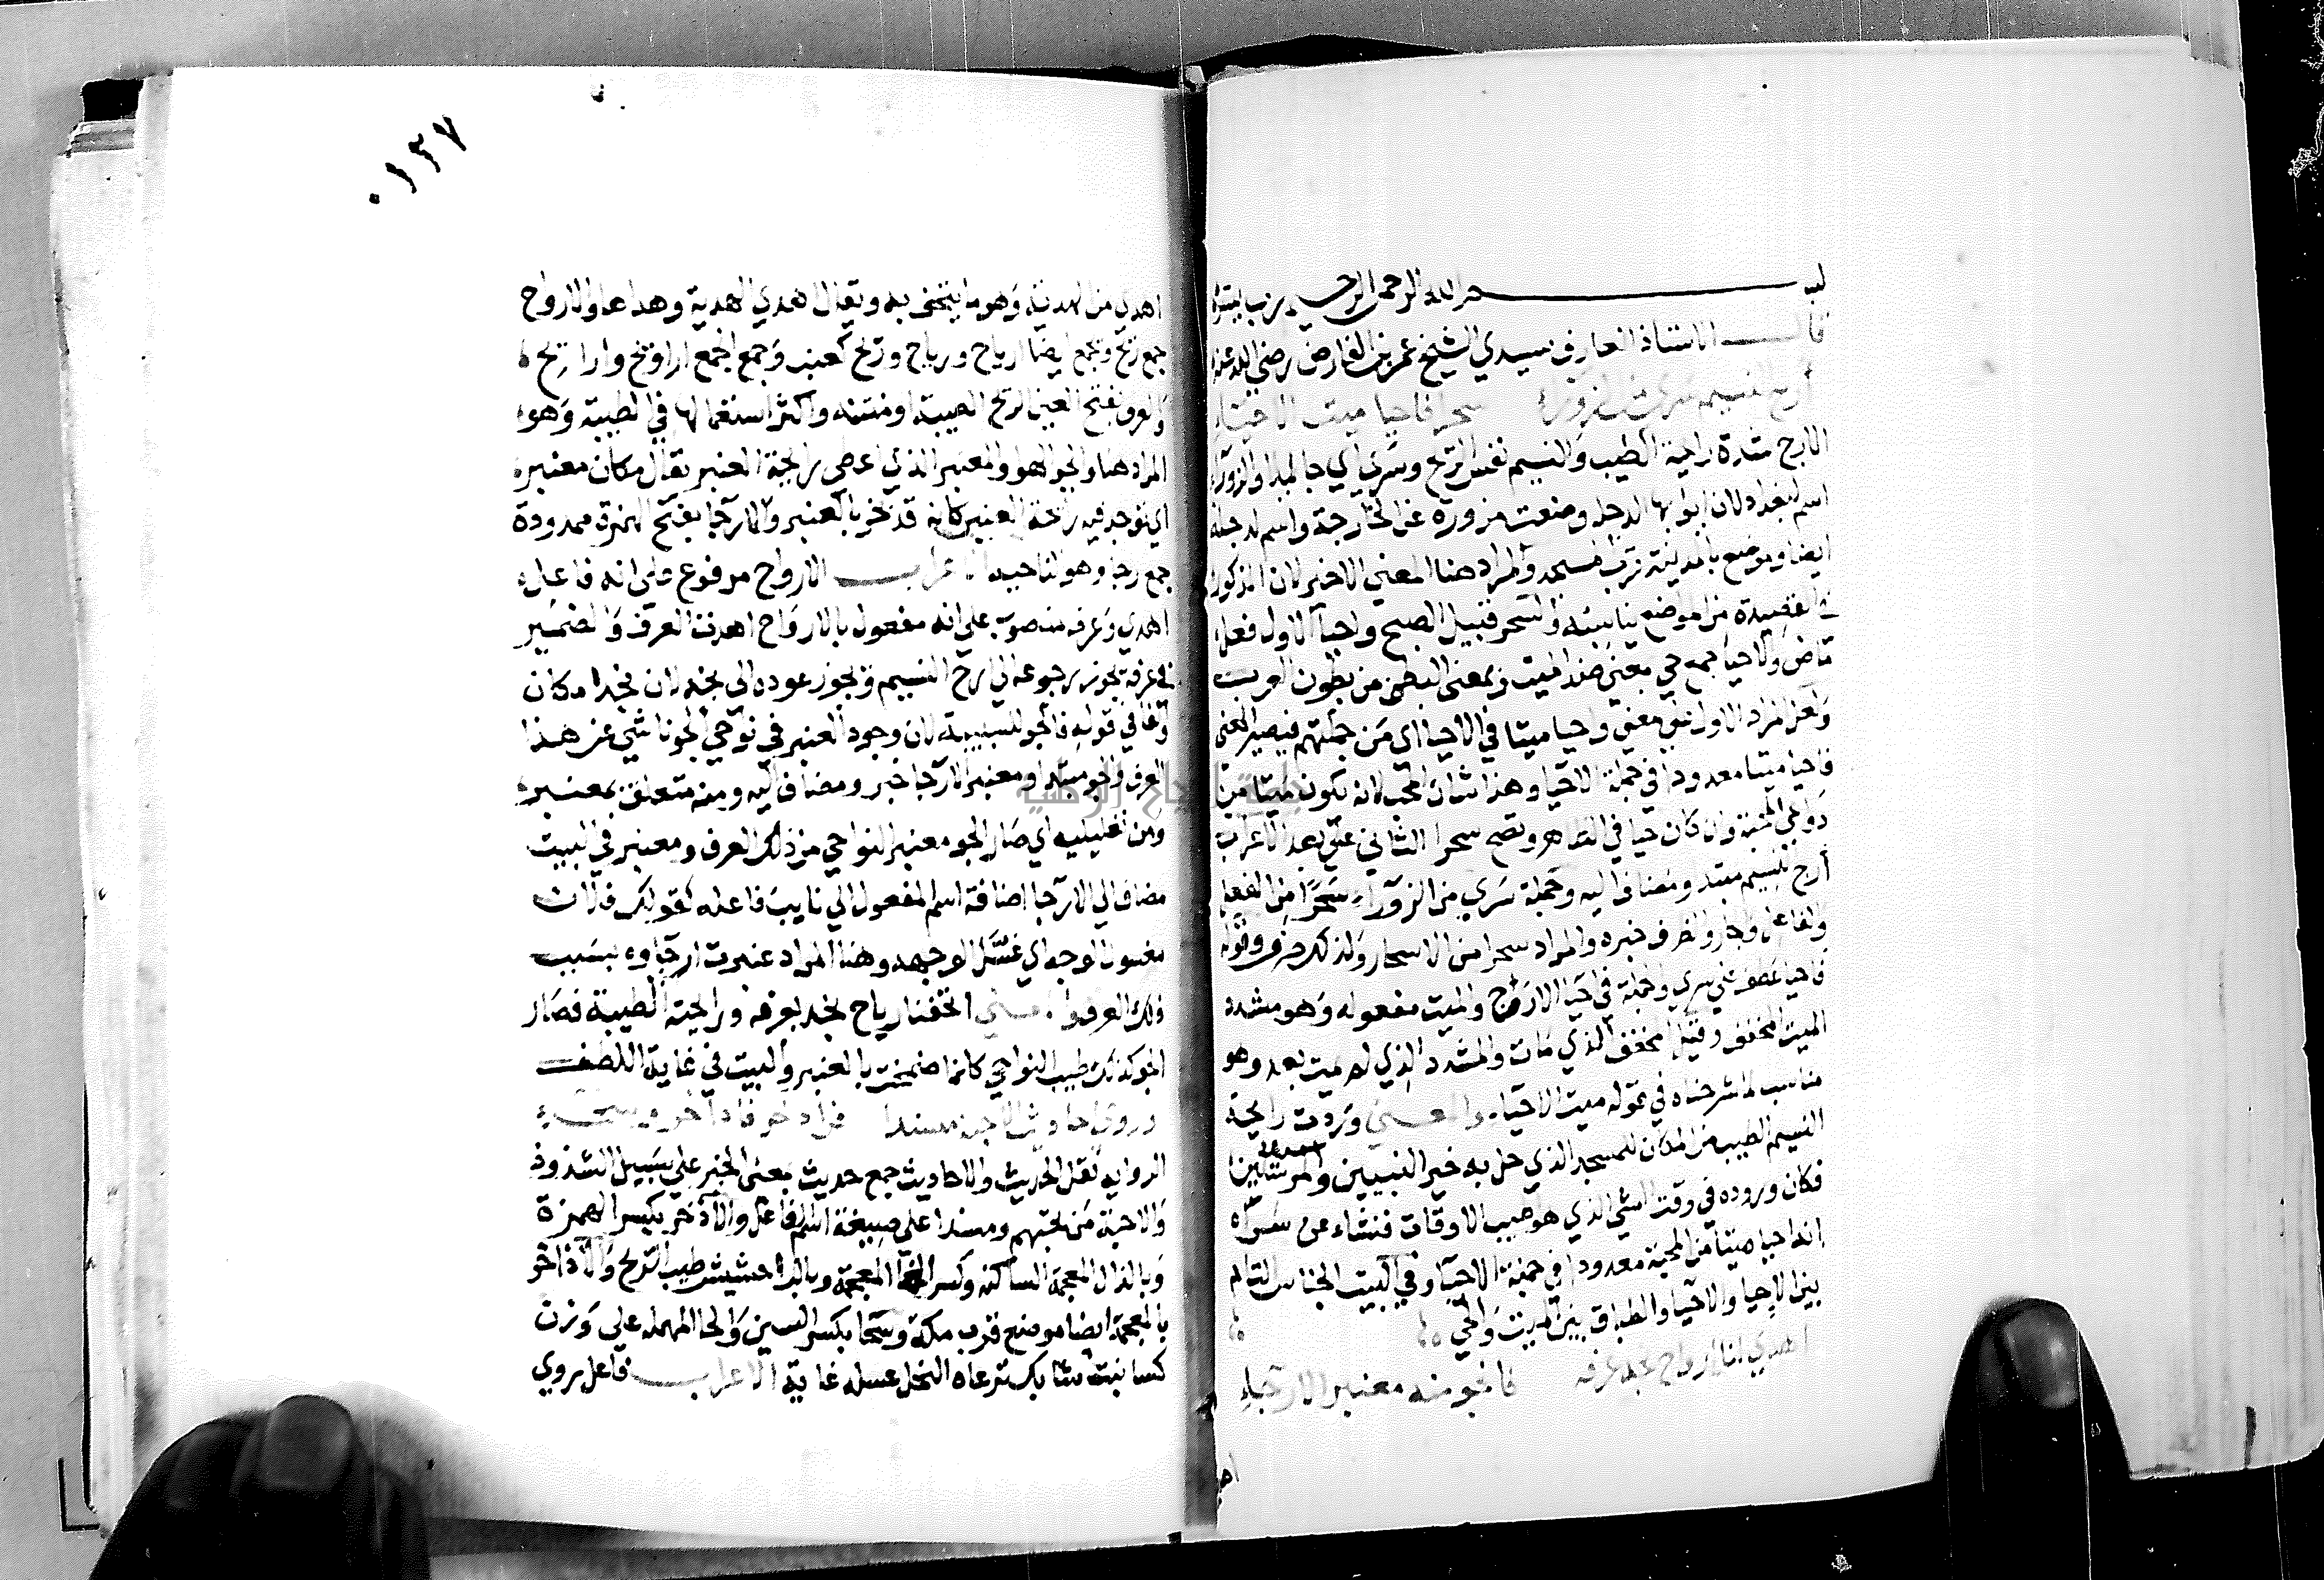 بسم الله الرحمن الرحيم رب يسر
قال الاستاذ العارف سيدي الشيخ عمر بن الفارض رضي الله عنه
أرج النسيم سرى من الزوراء سحرا فاحيا ميت الاحياء
الارج شدة رايحة الطيب والنسيم نفس الريح وسرى اي جا ليلا والزوراء
اسم لبغداد لان ابوابها الداخله وضعت مزورة عن الخارجة واسم لدجلة
ايضا وموضع بالمدينة قرب المسجد والمراد هنا المعني الاخير لان المذكور
في القصيدة من المواضع يناسبه والسحر قبيل الصبح واحيا الاول فعل
ماض والاحيا جمع حي بمعنى ضد الميت وبمعنى البطن من بطون العرب
ولعل المراد الاول على معنى واحيا ميتا في الاحيا اي من جملتهم فيصير المعنى
فاحيا ميتا معدودا في جملة الاحيا وهذا شان المحب لانه يكون ميتا من
دواعي المحبة وان كان حيا في الظاهر ويصح سحرا الثاني على بعد الاعراب
أرج النسيم مبتدا ومضاف اليه وجملة سرى من الزوراء سحرا من الفعل
والفاعل والجار والظرف خبره والمراد سحرا من الاسحار ولذلك صرف وقوله
فاحيا عطف على سري والجملة في احيا الارج والميت مفعوله وهو مشدد
الميت المخفف وقيل المخفف الذي مات والمشدد الذي لم يمت بعد وهو
مناسب لما شرحناه في قوله ميت الاحياء والمعـنى وردت رايحة
النسيم الطيب من المكان للمسجد الذي حل به خير النبيين والمرسلين
فكان وروده في وقت الشي الذي هو طيب الاوقات فنشاء عن سراه
انه احيا ميتا من المحبة معدودا في جملة الاحيا وفي البيت الجناس التام
بين الاحيا والاحيا والطباق بين الميت والحي
اهدي لنا ارواح نجد عرفه فالجو منه معنبر الارجاء
اهد
٠١٣٧
اهدي من الهديه وهو ما يتحف به ويقال اهدي الهدية وهداها والارواح
جمع ريح وتجمع ايضا ارياح ورياح وريح كعنب وجمع الجمع اراويح واراييح
والعرف بفتح العين الريح الطيبة او منتنه واكثر استعمالها في الطيبة وهو
المراد هنا والجو الهوا والمعنبر الذي اعطي رايحة العنبر يقال مكان معنبر
اي توجد فيه رايحة العنبر كانه قد بخر بالعنبر والارجا بفتح الهمزة ممدودة
جمع رجا وهو الناحيه الاعراب الارواح مرفوع على انه فاعل
اهدي وعرفه منصوب على انه مفعول بالارواح اهدت العرف والضمير
في عرفه يجوز رجوعه الي ارج النسيم ويجوز عوده الى نجد لان نجدا مكان
والفا في قوله فالجو للسببية لان وجود العنبر في نواحي الجو ناشي عن هذا
العرف والجو مبتدا ومعنبر الارجا خبر ومضاف اليه ومنه متعلق بمعنبر
ومن تعليليه اي صار الجو معنبر النواحي من ذلك العرف ومعنبر في البيت
مضاف الي الارجا اضافة اسم المفعول الي نايب فاعله كقولك فلان
مغسول الوجه اي غسل الوجهه وهنا المراد عنبرت ارجاوه بسبب
ذلك العرف والمعنى اتحفنا رياح نجد بعرفه ورايحته الطيبة فصار
الجو كذلك طيب النواحي كانما ضمخت بالعنبر والبيت في غاية اللطف
وروى احاديث الاحبة مسندا عن اذخر باذاخر وسحاء
الروايه نقل الحديث والاحاديث جمع حديث بمعنى الخبر على سبيل الشذوذ
والاحبة من تحبهم ومسندا على صيغة اسم الفاعل والاذخر بكسر الهمزة
وبالذال المعجمة الساكنه وكسر الخا المعجمة وبالرا حشيش طيب الريح والاذاخر
بالمعجمة ايضا موضع قرب مكة وسحا بكسر السين والحا المهمله على وزن
كسا نبت شايك ترعاه النحل عسله غاية الاعراب فاعل روي